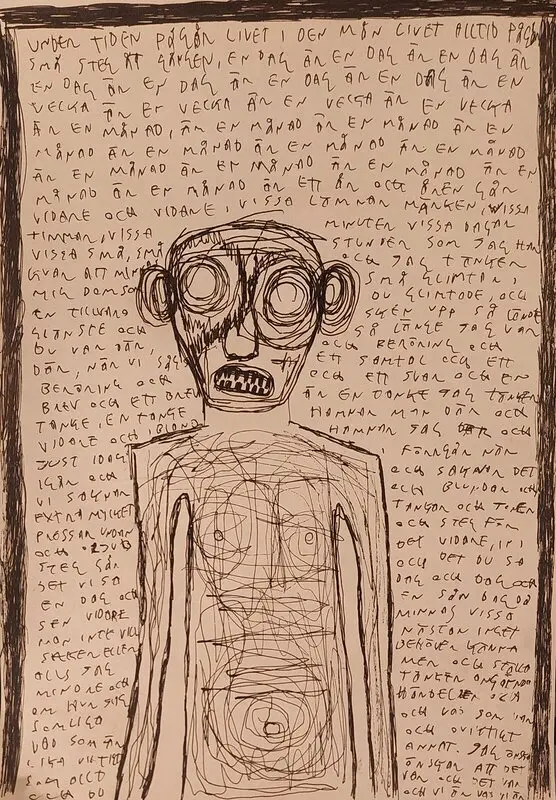 UNDER TIDEN PÅGÅR LIVET I DEN MÅN LIVET ALLTID PÅGÅR
SMÅ STEG ÅT GÅNGEN, EN DAG ÄR EN DAG ÄR EN DAG ÄR
EN DAG ÄR EN DAG ÄR EN DAG ÄR EN DAG ÄR EN
VECKA ÄR EN VECKA ÄR EN VECKA ÄR EN VECKA
ÄR EN MÅNAD, ÄR EN MÅNAD ÄR EN MÅNAD ÄR EN
MÅNAD ÄR EN MÅNAD ÄR EN MÅNAD ÄR EN MÅNAD
ÄR EN MÅNAD ÄR EN MÅNAD ÄR EN MÅNAD ÄR EN
MÅNAD ÄR EN MÅNAD ÄR ETT ÅR OCH ÅREN GÅR
VIDARE OCH VIDARE, VISSA LÄMNAR MÄRKEN, VISSA
TIMMAR, VISSA MINUTER VISSA DAGAR
VISSA SMÅ, SMÅ STUNDER SOM JAG HAR
KVAR ATT JAG TÄNKER
MIG SMÅ GLIMTAR,
EN TILLVARO DU GLIMTADE, OCH
GLÄNSTE OCH SKEN UPP SÅ LÄNGE
DU VAR DÄR, SÅ LÄNGE JAG VAR
DÄR, NÄR VI SÅGS OCH BERÖRING OCH
BERÖRING OCH ETT SAMTAL OCH ETT
BREV OCH ETT BREV OCH ETT SVAR OCH EN
TANKE, EN TANKE ÄR EN TANKE JAG TÄNKER
VIDARE OCH IBLAND HAMNAR MAN DÄR OCH
JUST IDAG HAMNAR JAG DÄR OCH
IGÅR OCH FÖRRGÅR NÄR
VI SAKNAR OCH SAKNAR DET
EXTRA MYCKET OCH BLUNDAR OCH
PRESSAR UNDAN TÅNGAR OCH
OCH OCH STEG FÖR
STEG GÅR DET VIDARE,
DET VISA OCH DET DU SA
EN DAG OCH DAG OCH DAG OCH
SEN VIDARE EN SÅN DAG DÅ
MAN INTE VILL MINNAS VISSA
SÄKER ELLER NÄSTAN INGET
ALLS JAG BEHÖVER KÄNNA
MINDRE OCH MER OCH STÄLLA
OM HUR TANKEN ANGÅENDE
SOMLIGA HÄNDELSER OCH
VAD SOM ÄR OCH VAD SOM VAR
LIKA VIKTIGT OCH OVIKTIGT
ALLT ANNAT. JAG ÖNSKAR
OCH DU ÖNSKAR ATT DET
VAR OCH DET VAR
OCH VI ÄR VAD VI ÄR